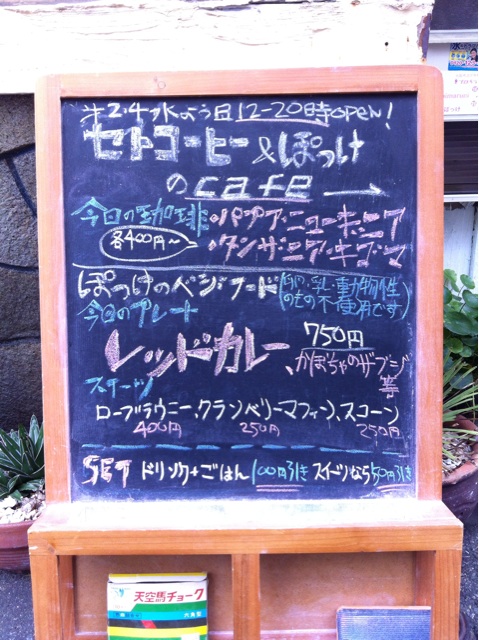 第2.4水よう日12-20時open!
セトコーヒー&ぽっけ
のcafe →
今日の珈琲・パプアニューギニア
各400円〜 ・タンザニア・キゴマ
ぽっけのベジフード(卵・乳・動物性
のもの不使用です)
今日のプレート
レッドカレー 750円
、かぼちゃのサブジ
等
スイーツ
ローブラウニー、クランベリーマフィン、スコーン
400円 250円 250円
SET ドリンク+ごはん 100円引き スイーツなら50円引き
天空馬チョーク
六角型